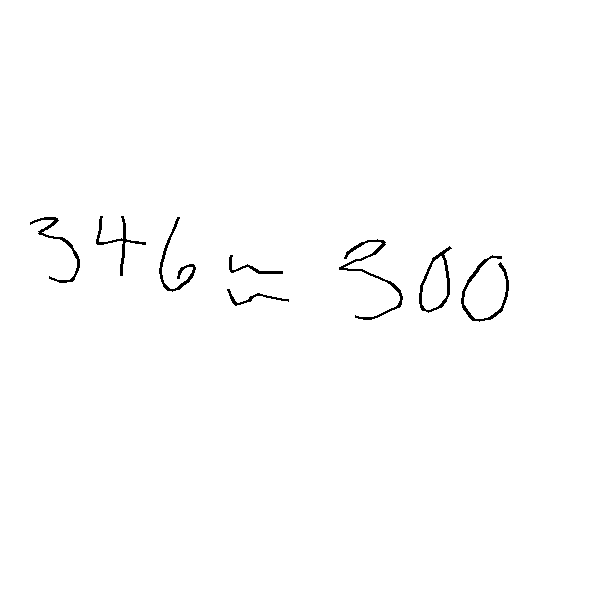 346 ≈ 300